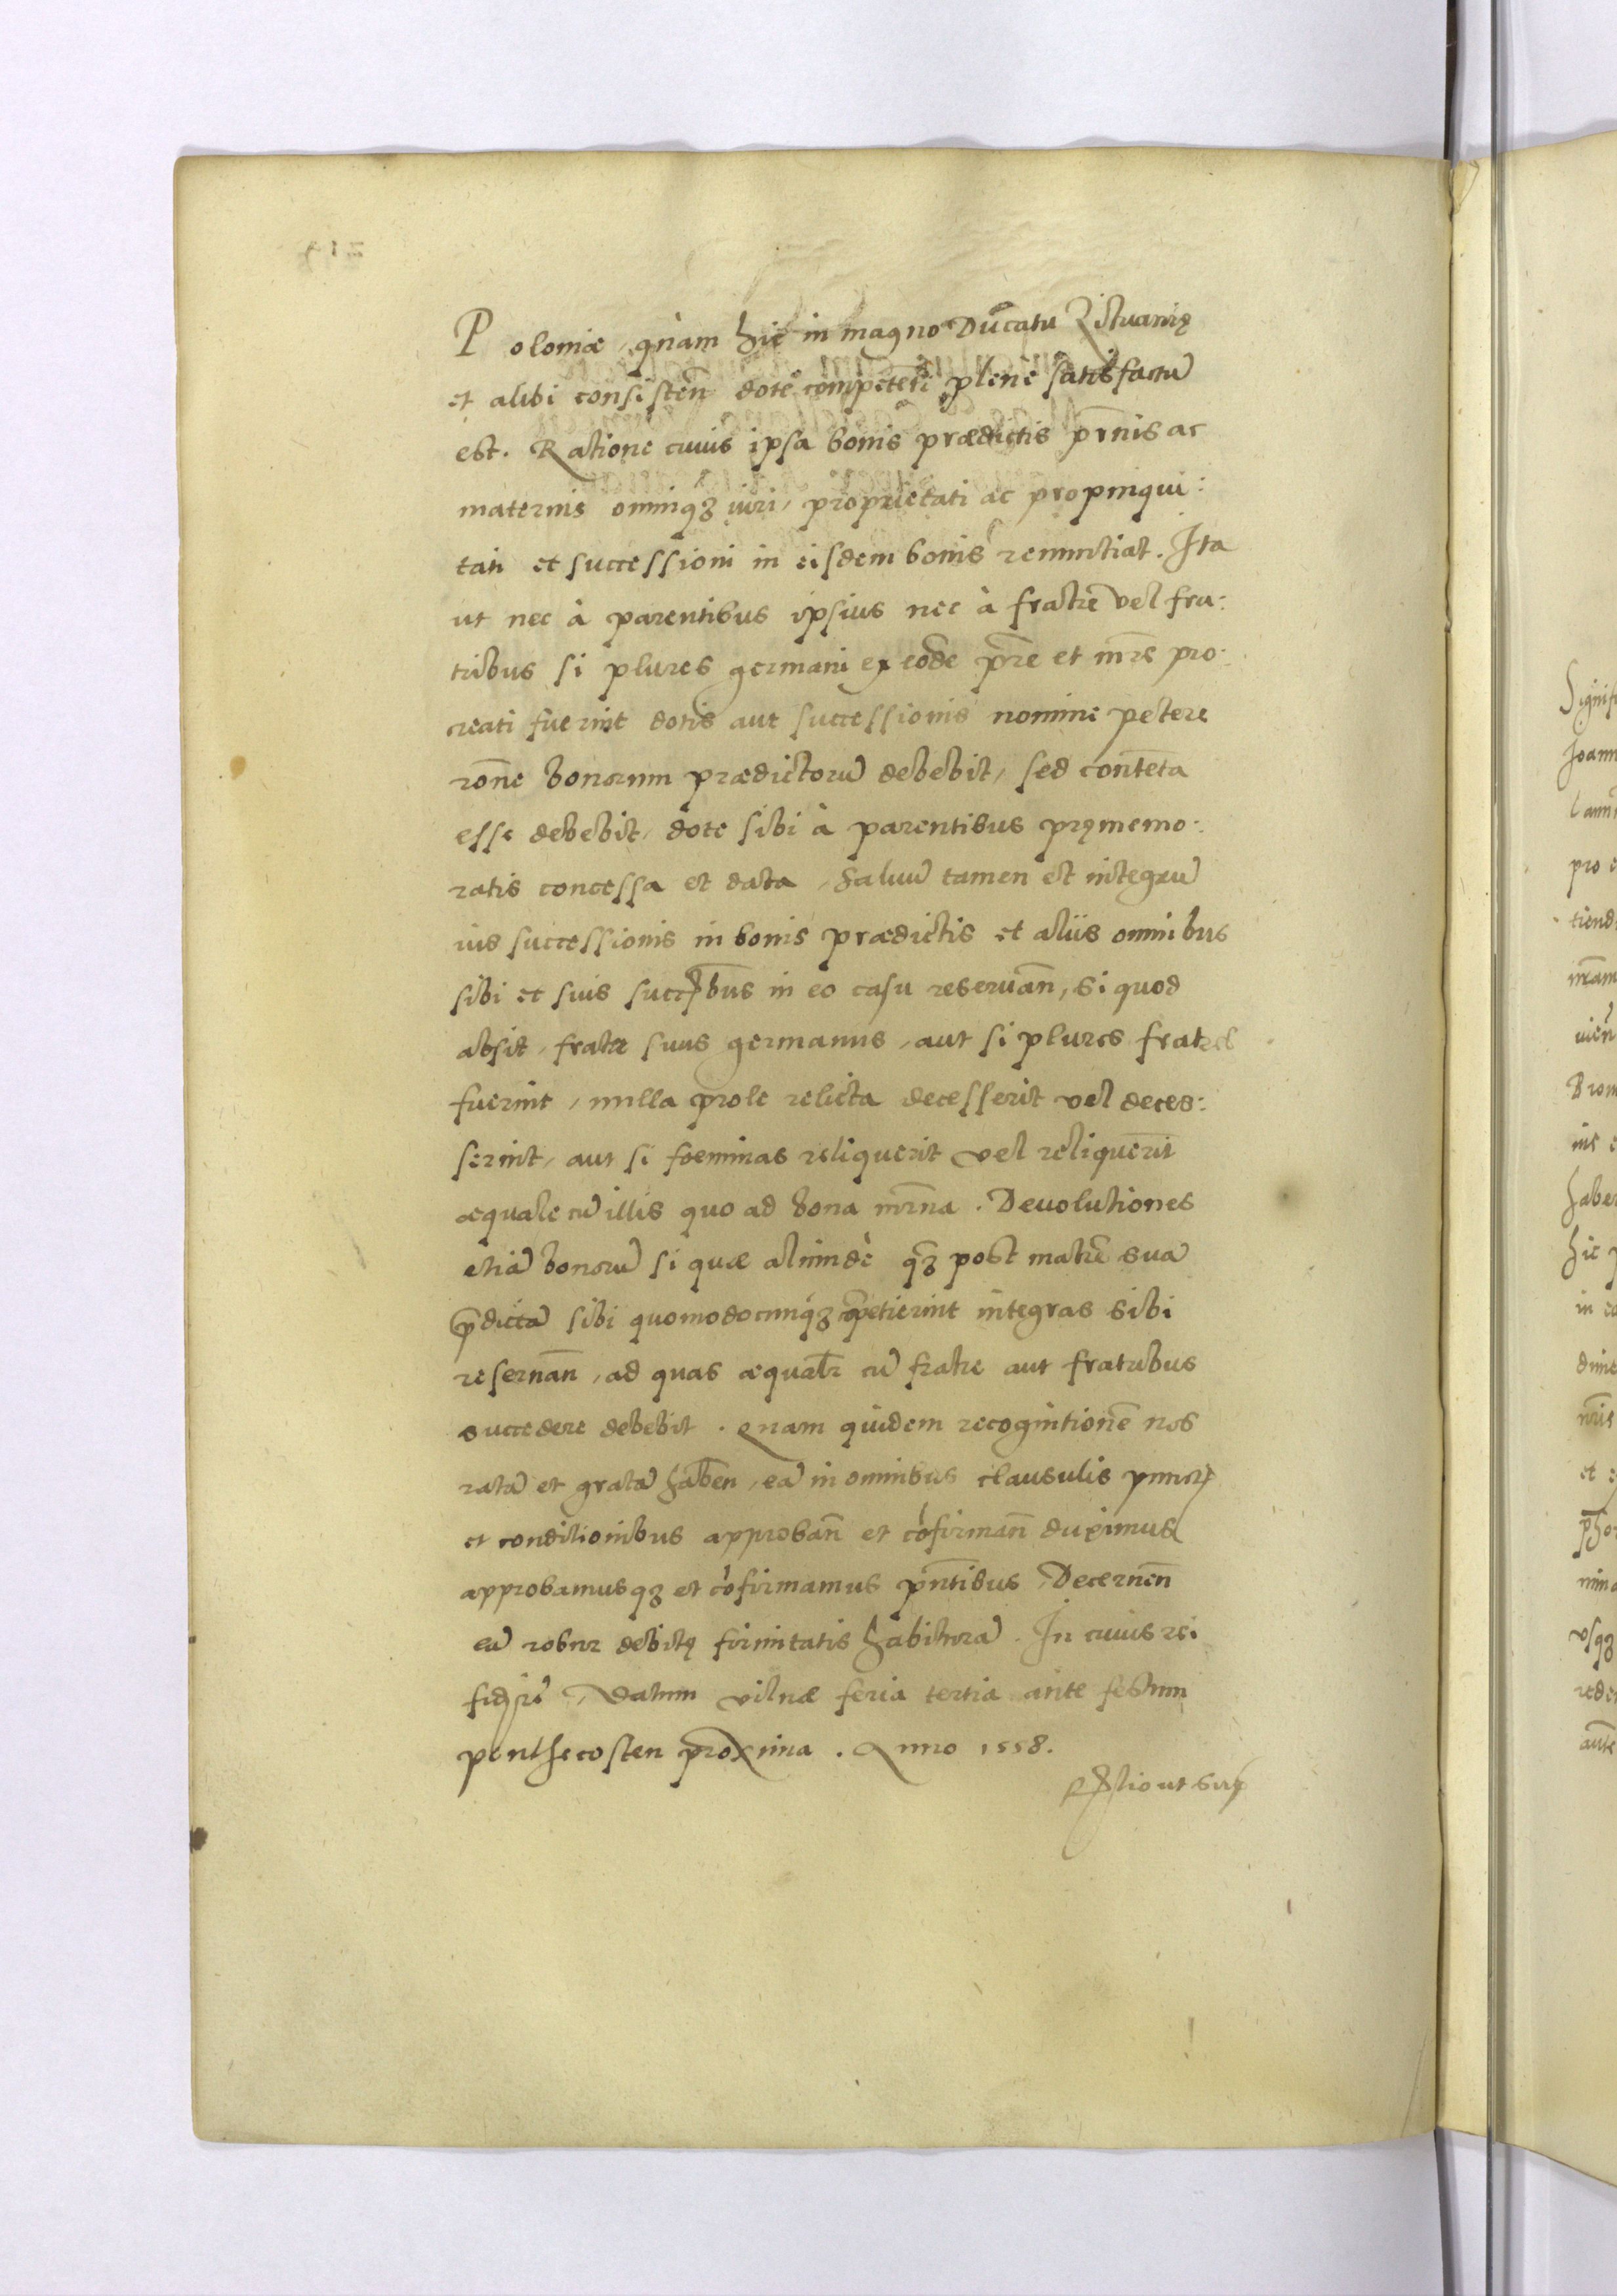 Poloniæ, quàm hic in magno Ducatu Littuanię
et alibi consisten̄ dotē competētē plenè satisfactū
est. Ratione cuius ipsa bonis prædictis pr̄nis ac
maternis omniqȝ iuri, proprietati ac propinqui:
tati et successioni in eisdem bonis renuntiat. Ita
ut nec à parentibus ipsius nec à fratrē vel fra:
tribus si plures germani ex eodē pr̄e et mr̄e pro:
creati fuerint dotis aut successionis nomine petere
rōne bonorum prædictorū debebit, sed contēta
esse debebit, dote sibi à parentibus pręmemo:
ratis concessa et data, Saluū tamen et integrū
ius successionis in bonis prædictis et aliis omnibus
sibi et suis succ̄bus in eo casu reseruan̄, si quod
absit, frater suus germanus, aut si plures fratres
fuerint, nulla prole relicta decesserit vel deces:
serint, aut si foeminas reliquerit vel reliquerīt
æquale cū illis quo ad bona mr̄na. Deuolutiones
etiā bonorū si quæ aliundè qȝ post matrē suā
p̄dictā sibi quomodocunqȝ cōpetierint integras sibi
reseruan̄, ad quas æqualr̄ cū fratre aut fratribus
succedere debebit. Quam quidem recognitionē nos
ratā et gratā haben̄, eā in omnibus clausulis punctis
et conditionibus approban̄ et cōfirman̄ duximus
approbamusqȝ et cōfirmamus pn̄tibus, Decernen̄
eā robur debitę firmitatis habiturā. In cuius rei
fidē, Datum vilnæ feria tertia ante festum
penthecosten proxima. Anno 1558.
R̄lio ut sup̄